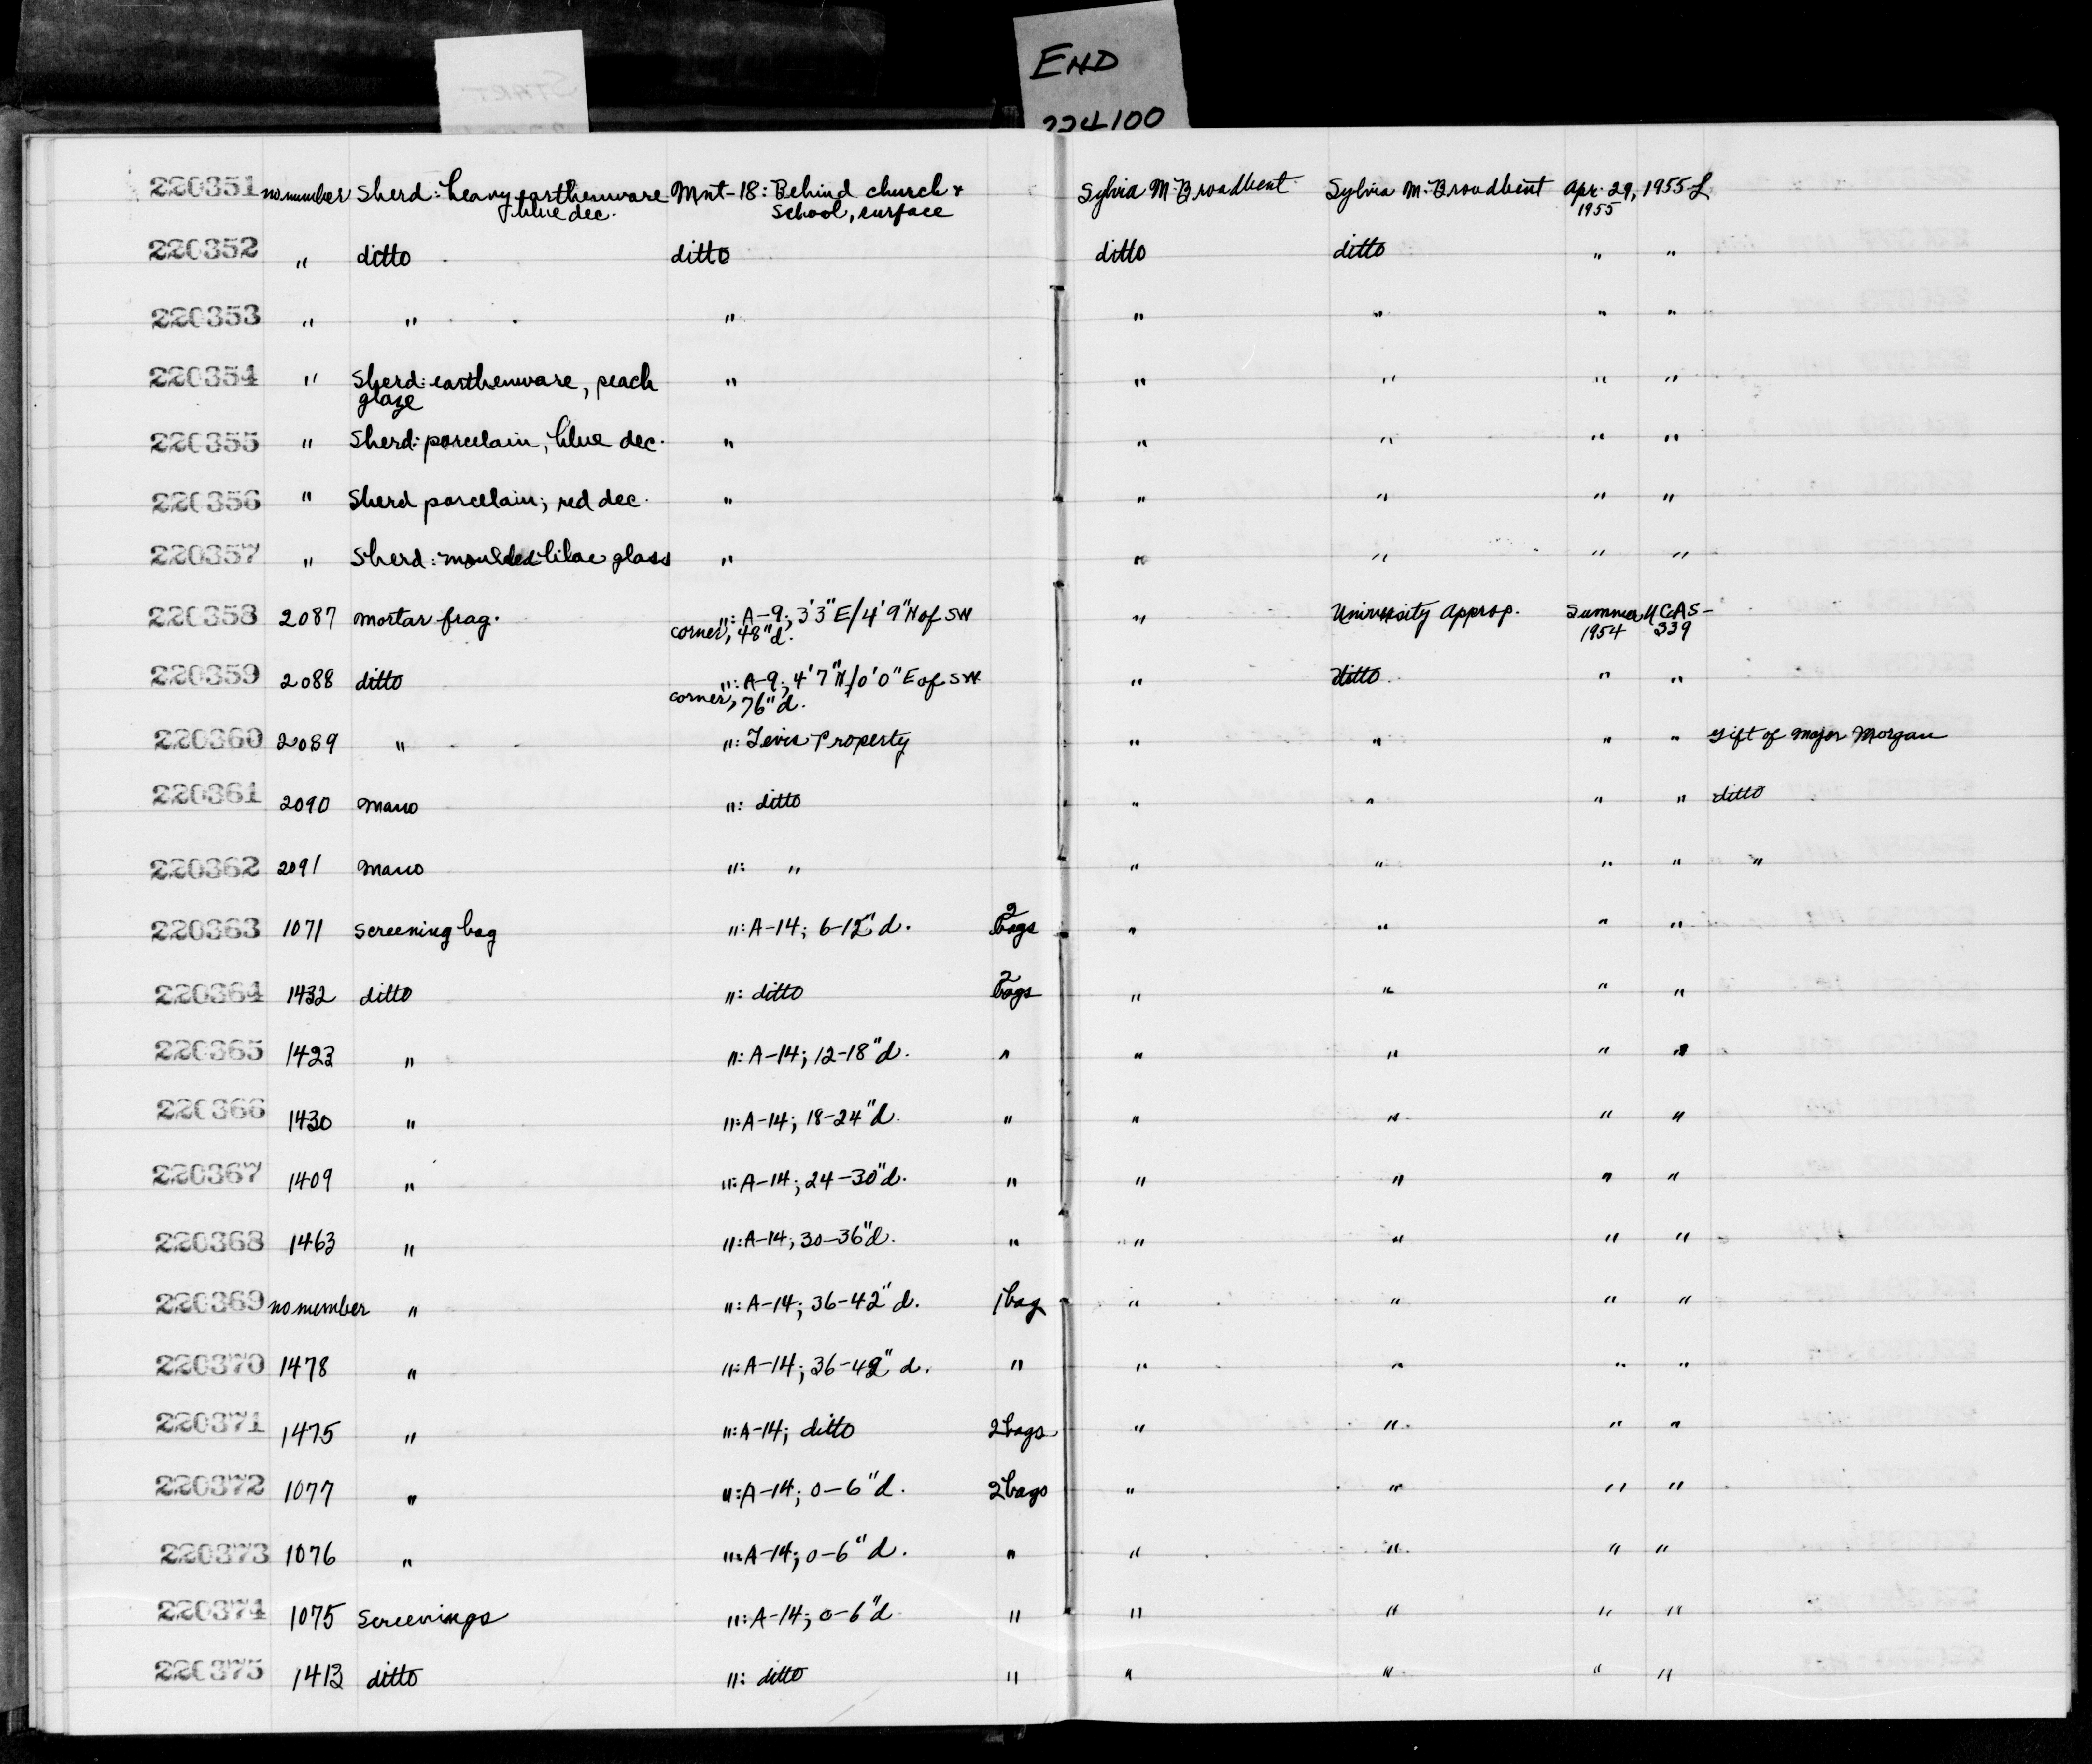 START
END
224100
220351 no number Sherd: heavy earthenware Mnt-18: Behind church + Sylvia M. Broadbent Sylvia M. Broadbent Apr. 29, 1955-L
blue dec. School, surface 1955
220352 " ditto ditto ditto ditto " "
220353 " " " " " " "
220354 " Sherd: earthenware, peach " " " " "
glaze
220355 " Sherd: porcelain, blue dec. " " " " "
220356 " Sherd porcelain; red dec. " " " " "
220357 " Sherd: moulded lilac glass " " " " "
220358 2087 mortar frag. ": A-9; 3'3" E/4'9" N of SW " University Approp. Summer UCAS-
corner, 48" d. 1954 339
220359 2088 ditto ": A-9; 4'7" N/0'0" E of SW " ditto " "
corner, 76" d.
220360 2089 " ": Property " " " " gift of Major Morgan
220361 2090 Mano ": ditto " " " " ditto
220362 2091 Mano ": " " " " " "
220363 1071 screening bag ": A-14; 6-12" d. 2 bags " " " "
220364 1432 ditto ": ditto 2 bags " " " "
220365 1423 " ": A-14; 12-18" d. " " " " "
220366 1430 " ": A-14; 18-24" d. " " " " "
220367 1409 " ": A-14; 24-30" d. " " " " "
220368 1463 " ": A-14; 30-36" d. " " " " "
220369 no number " ": A-14; 36-42" d. 1 bag " " " "
220370 1478 " ": A-14; 36-42" d. " " " " "
220371 1475 " ": A-14; ditto 2 bags " " " "
220372 1077 " ": A-14; 0-6" d. 2 bags " " " "
220373 1076 " ": A-14; 0-6" d. " " " " "
220374 1075 Screenings ": A-14; 0-6" d " " " " "
220375 1413 ditto ": ditto " " " " "